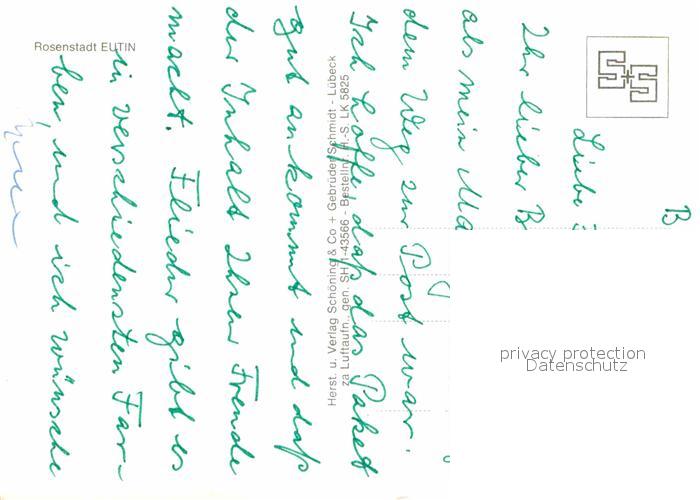 Rosenstadt EUTIN
B
Liebe
Ihr lieber B
als mein Ma
dem Weg zur Post war.
Ich hoffe, daß das Paket
gut ankommt und daß
der Inhalt Ihnen Freude
macht. Flieder gibt es
in verschiedensten Far-
ben, und ich wünsche
Herst. u. Verlag Schöning & Co + Gebrüder Schmidt - Lübeck
za Luftaufn., gen. SH 1-43566 - Bestellnr. H.-S. LK 5825
privacy protection
Datenschutz